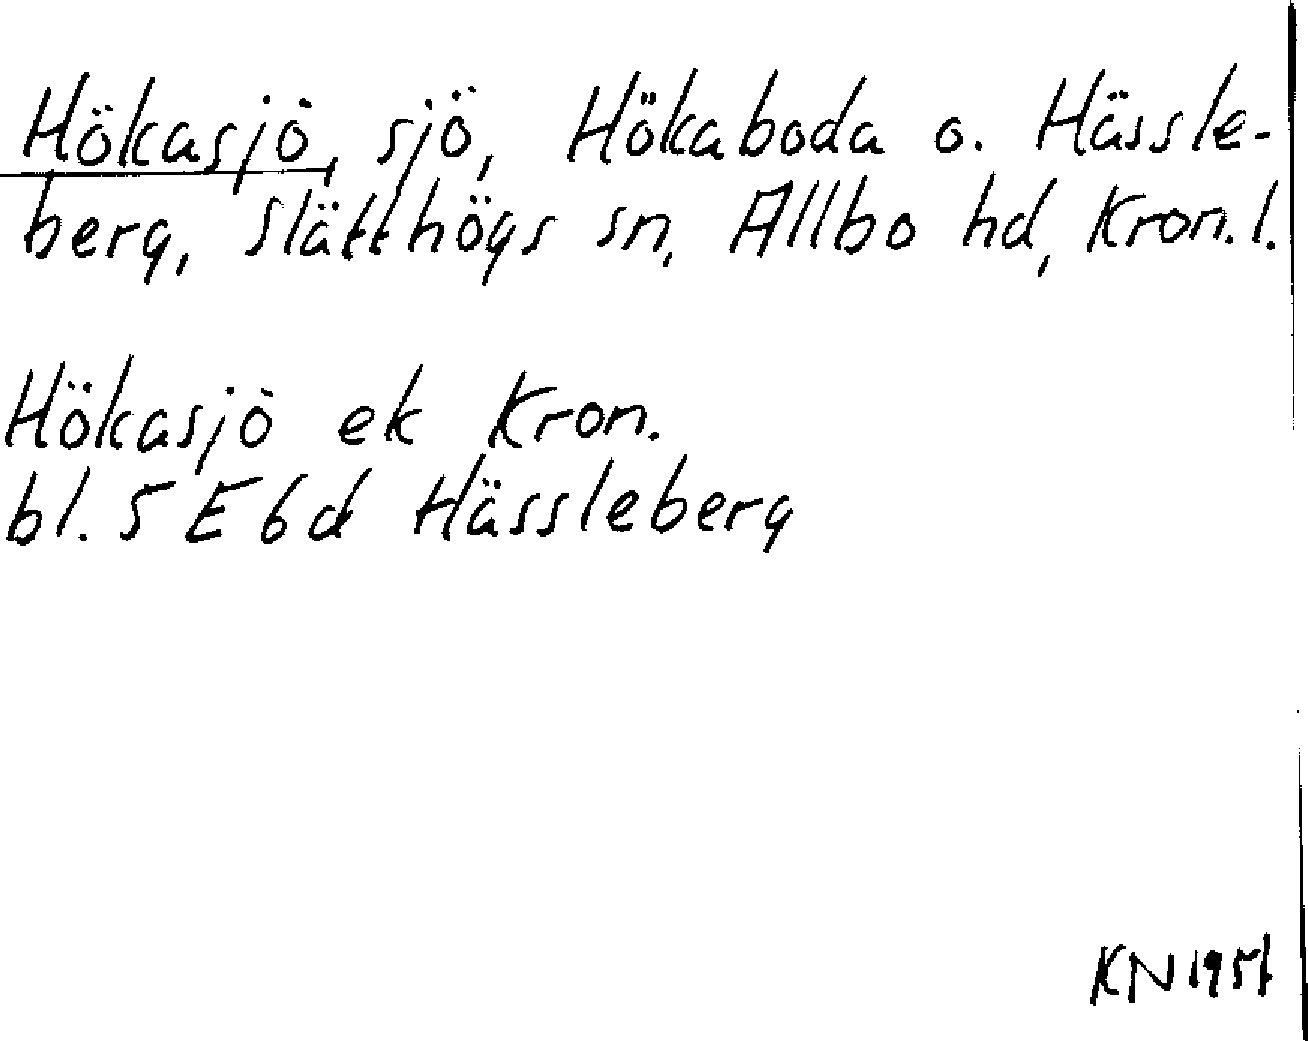 Hökasjö, sjö, Hökaboda o. Hässle-
berg, Slätthögs sn, Allbo hd, Kron. l.
Hökasjö ek Kron.
bl. 5 E 6 d Hässleberg
KN 1951